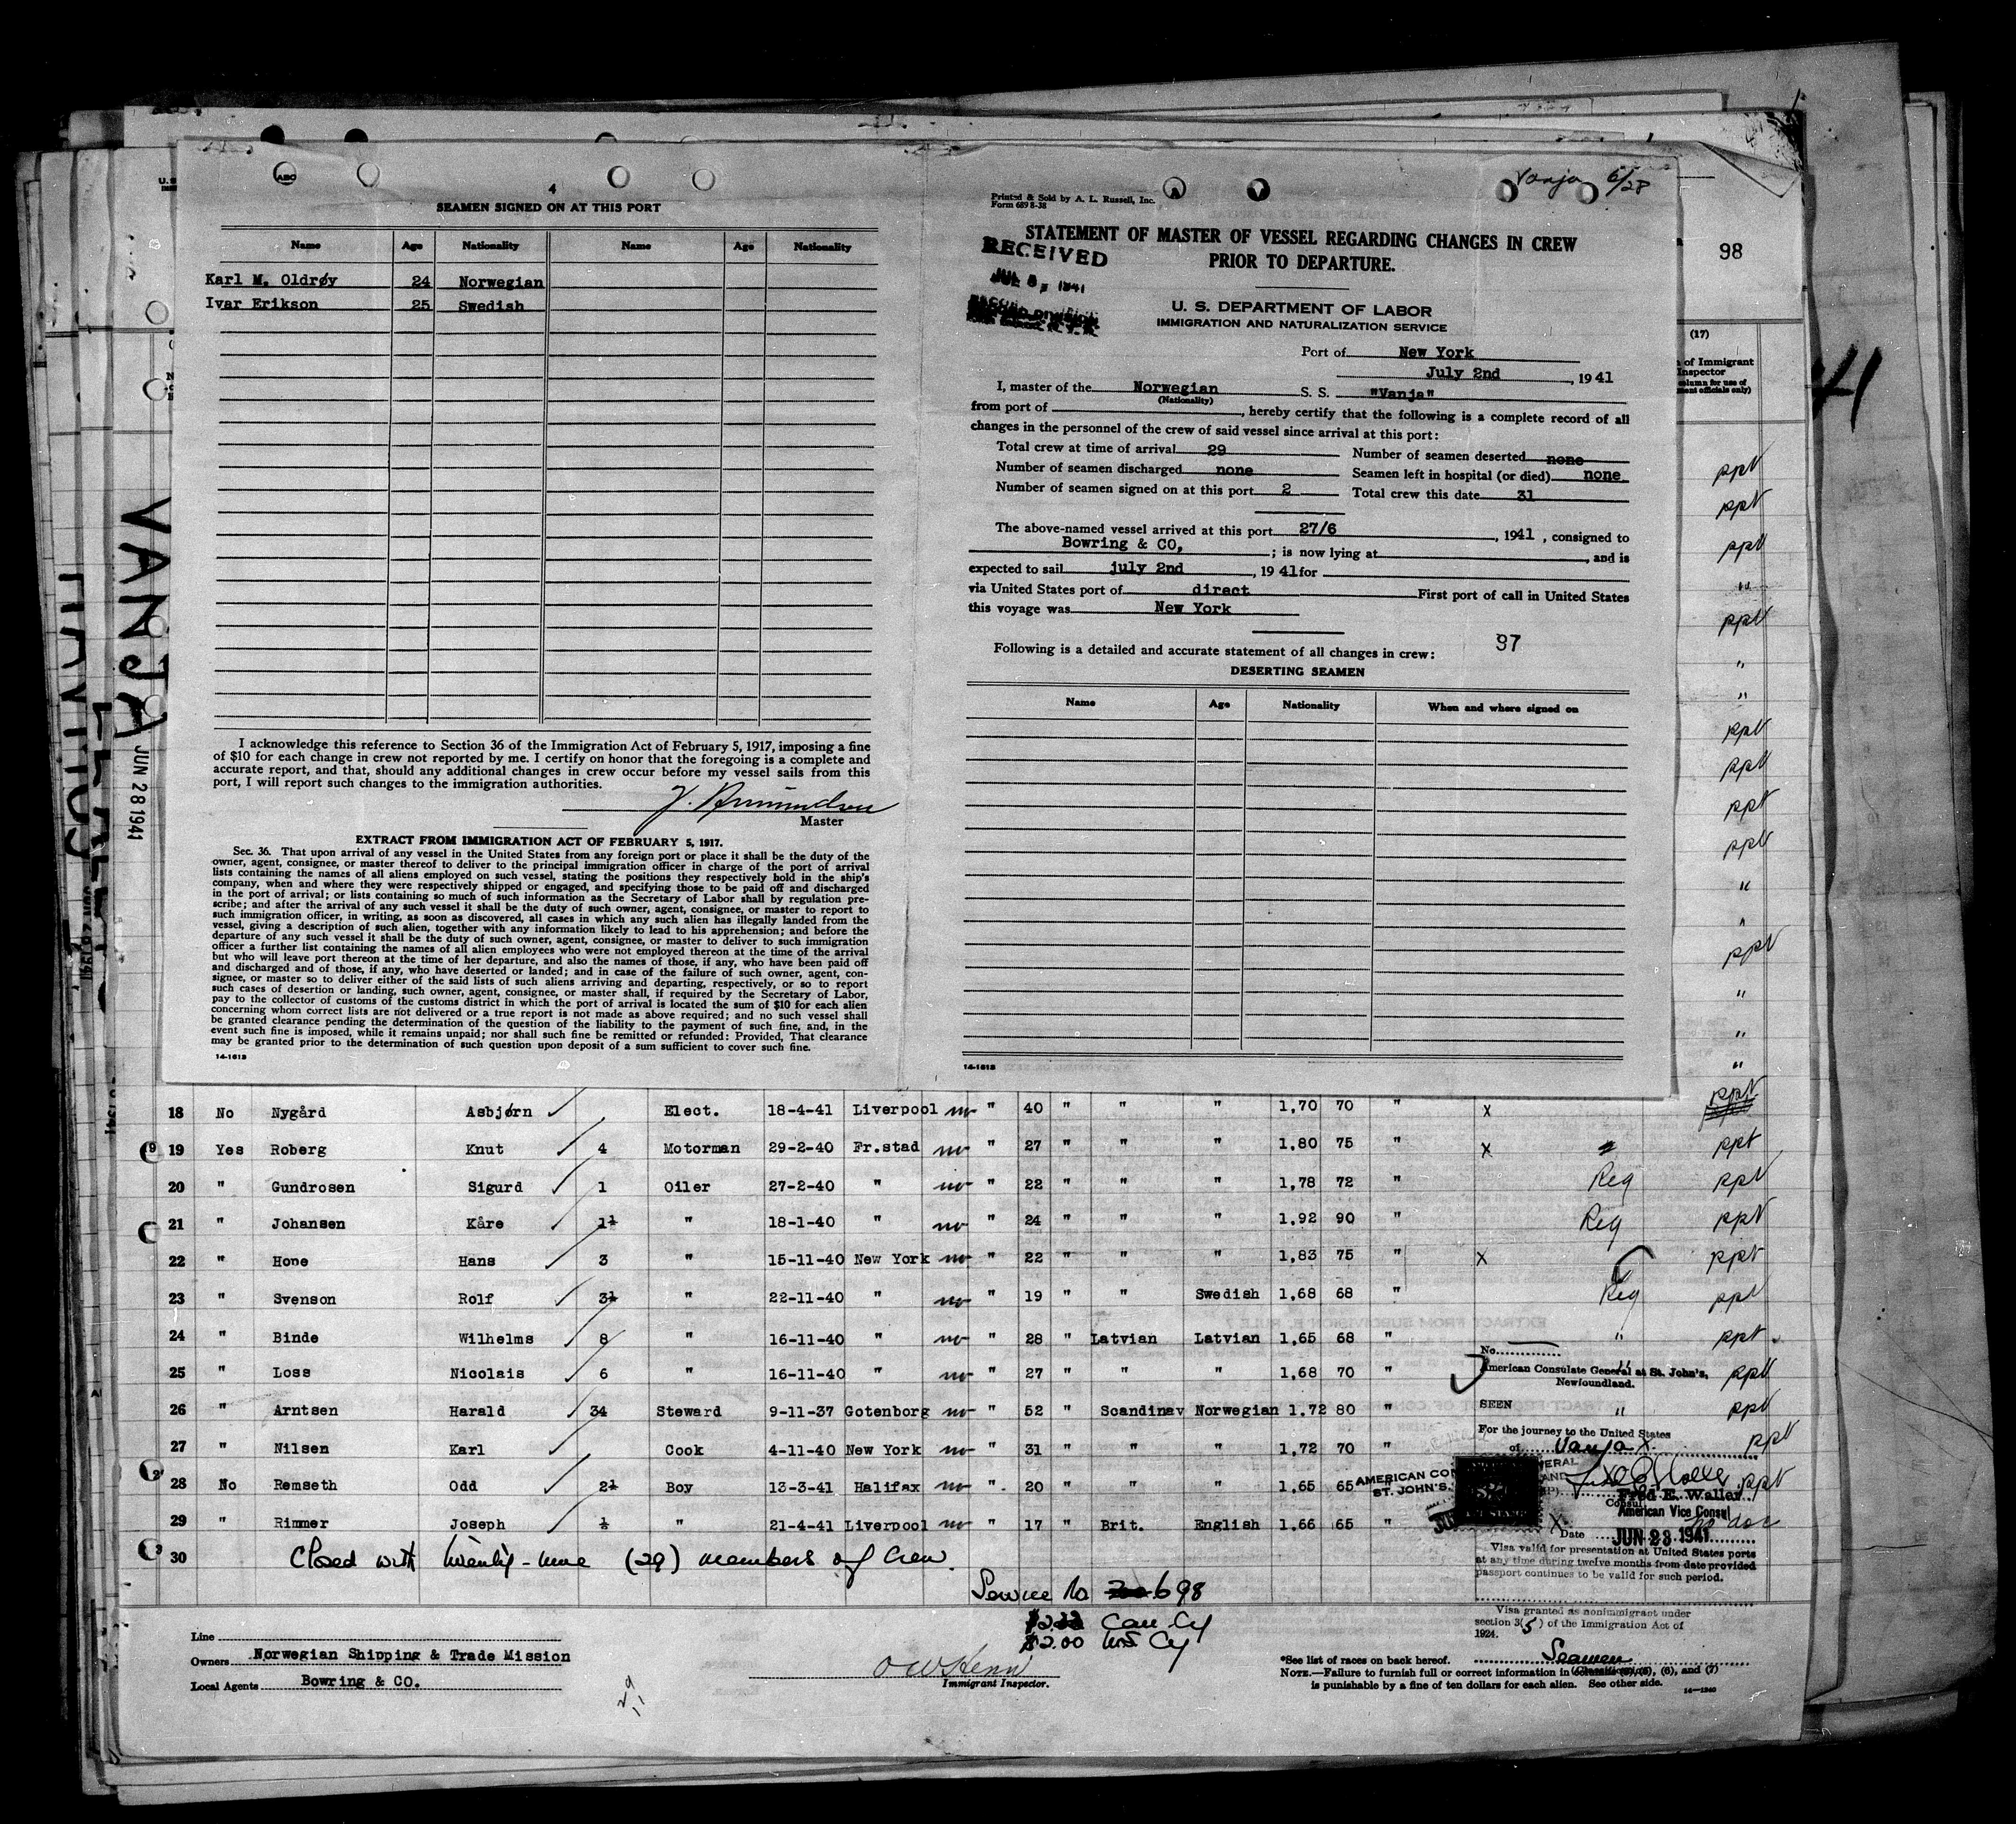 4
SEAMEN SIGNED ON AT THIS PORT
Name Age Nationality Name Age Nationality
Karl M. Oldrøy 24 Norwegian
Ivar Erikson 25 Swedish
I acknowledge this reference to Section 36 of the Immigration Act of February 5, 1917, imposing a fine
of $10 for each change in crew not reported by me. I certify on honor that the foregoing is a complete and
accurate report, and that, should any additional changes in crew occur before my vessel sails from this
port, I will report such changes to the immigration authorities.
Master
EXTRACT FROM IMMIGRATION ACT OF FEBRUARY 5, 1917.
Sec. 36. That upon arrival of any vessel in the United States from any foreign port or place it shall be the duty of the
owner, agent, consignee, or master thereof to deliver to the principal immigration officer in charge of the port of arrival
lists containing the names of all aliens employed on such vessel, stating the positions they respectively hold in the ship's
company, when and where they were respectively shipped or engaged, and specifying those to be paid off and discharged
in the port of arrival; or lists containing so much of such information as the Secretary of Labor shall by regulation pre-
scribe; and after the arrival of any such vessel it shall be the duty of such owner, agent, consignee, or master to report to
such immigration officer, in writing, as soon as discovered, all cases in which any such alien has illegally landed from the
vessel, giving a description of such alien, together with any information likely to lead to his apprehension; and before the
departure of any such vessel it shall be the duty of such owner, agent, consignee, or master to deliver to such immigration
officer a further list containing the names of all alien employees who were not employed thereon at the time of the arrival
but who will leave port thereon at the time of her departure, and also the names of those, if any, who have been paid off
and discharged and of those, if any, who have deserted or landed; and in case of the failure of such owner, agent, con-
signee, or master so to deliver either of the said lists of such aliens arriving and departing, respectively, or so to report
such cases of desertion or landing, such owner, agent, consignee, or master shall, if required by the Secretary of Labor,
pay to the collector of customs of the customs district in which the port of arrival is located the sum of $10 for each alien
concerning whom correct lists are not delivered or a true report is not made as above required; and no such vessel shall
be granted clearance pending the determination of the question of the liability to the payment of such fine, and, in the
event such fine is imposed, while it remains unpaid; nor shall such fine be remitted or refunded: Provided, That clearance
may be granted prior to the determination of such question upon deposit of a sum sufficient to cover such fine.
14-1613
Vanja 6/28
Printed & Sold by A. L. Russell, Inc.
Form 689 8-38
STATEMENT OF MASTER OF VESSEL REGARDING CHANGES IN CREW
PRIOR TO DEPARTURE.
RECEIVED
U. S. DEPARTMENT OF LABOR
IMMIGRATION AND NATURALIZATION SERVICE
Port of New York
July 2nd, 1941
I, master of the Norwegian S. S. "Vanja"
(Nationality)
from port of , hereby certify that the following is a complete record of all
changes in the personnel of the crew of said vessel since arrival at this port:
Total crew at time of arrival 29 Number of seamen deserted none
Number of seamen discharged none Seamen left in hospital (or died) none
Number of seamen signed on at this port 2 Total crew this date 31
The above-named vessel arrived at this port 27/6, 1941, consigned to
Bowring & CO, ; is now lying at , and is
expected to sail july 2nd, 1941 for
via United States port of direct First port of call in United States
this voyage was New York
97
Following is a detailed and accurate statement of all changes in crew:
DESERTING SEAMEN
Name Age Nationality When and where signed on
14-1613
98
(17)
of Immigrant
Inspector
VANJA
JUN 28 1941
41
ppt
ppt
ppt
"
ppt
"
"
ppt
ppt
ppt
ppt
"
"
ppt
"
"
"
18 No Nygård Asbjørn Elect. 18-4-41 Liverpool no " 40 " " " 1,70 70 " x ppt
19 Yes Roberg Knut 4 Motorman 29-2-40 Fr.stad no " 27 " " " 1,80 75 " x ppt
20 " Gundrosen Sigurd 1 Oiler 27-2-40 " no " 22 " " " 1,78 72 " Reg ppt
21 " Johansen Kåre 1½ " 18-1-40 " no " 24 " " " 1,92 90 " Reg ppt
22 " Hone Hans 3 " 15-11-40 New York no " 22 " " " 1,83 75 " x ppt
23 " Svenson Rolf 3½ " 22-11-40 " no " 19 " " Swedish 1,68 68 " Reg ppt
24 " Binde Wilhelms 8 " 16-11-40 " no " 28 " Latvian Latvian 1,65 68 " " ppt
25 " Loss Nicolais 6 " 16-11-40 " no " 27 " " " 1,68 70 " " ppt
26 " Arntsen Harald 34 Steward 9-11-37 Gotenborg no " 52 " Scandinav Norwegian 1,72 80 " " ppt
27 " Nilsen Karl Cook 4-11-40 New York no " 31 " " " 1,72 70 " x ppt
28 No Remseth Odd 2½ Boy 13-3-41 Halifax no " 20 " " " 1,65 65 ppt
29 " Rimmer Joseph ½ " 21-4-41 Liverpool no " 17 " Brit. English 1,66 65 " x no doc
30 Closed with twenty-nine (29) members of Crew
No.
American Consulate General at St. John's,
Newfoundland.
SEEN
For the journey to the United States
of Vanja
AMERICAN CONSULATE GENERAL
ST. JOHN'S,
Fred E. Waller
Consul
American Vice Consul
Date JUN 23 1941
Visa valid for presentation at United States ports
at any time during twelve months from date provided
passport continues to be valid for such period.
Visa granted as nonimmigrant under
section 3(5) of the Immigration Act of
1924.
Seamen
Service No 698
Can. Cy
$2.00 US Cy
Line
Owners Norwegian Shipping & Trade Mission
Local Agents Bowring & Co.
Immigrant Inspector.
*See list of races on back hereof.
NOTE.—Failure to furnish full or correct information in columns (5), (6), and (7)
is punishable by a fine of ten dollars for each alien. See other side.
14-1240